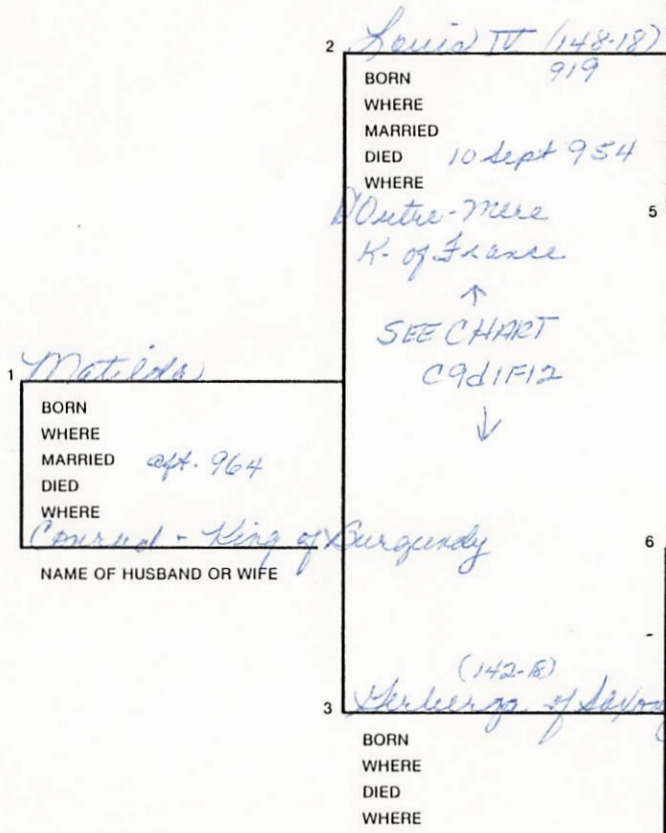 2 Louis IV (148-18)
BORN 919
WHERE
MARRIED
DIED 10 Sept 954
WHERE
D'Outre-Mere
K. of France
5
↑
SEE CHART
C9d1F12
↓
1 Matilda
BORN
WHERE
MARRIED aft. 964
DIED
WHERE
Conrad - King of Burgundy
NAME OF HUSBAND OR WIFE
6
-
(142-18)
3 Gerberga of
BORN
WHERE
DIED
WHERE